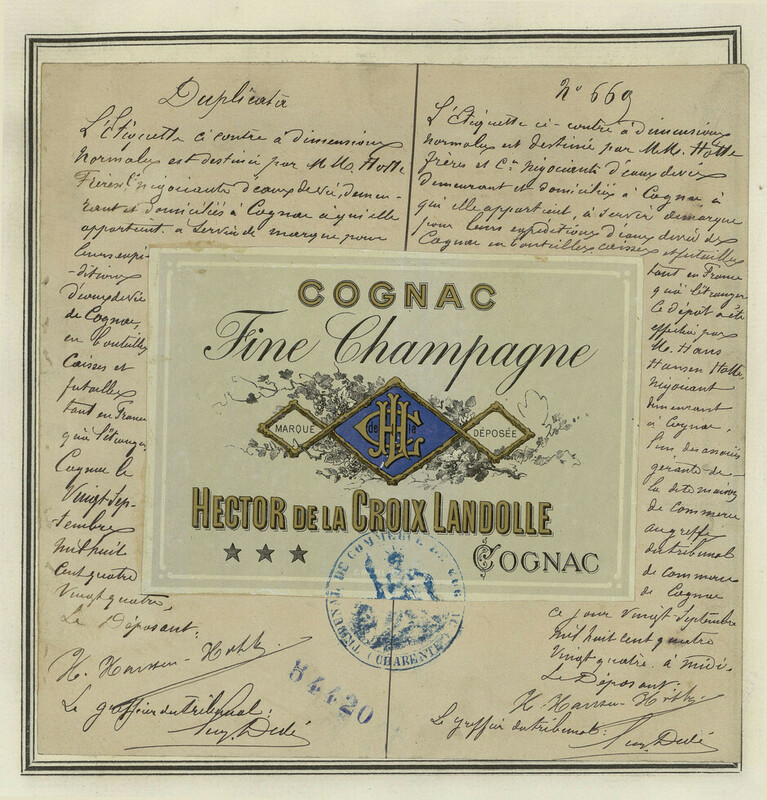 Duplicata
L'Etiquette ci contre à dimensions
normales est destinée par MM. Hotte
Frères négociants d'eaux de vie, demeu-
rant et domiciliés à Cognac à qui elle
appartient à servir de marque pour
leurs expé-
ditions
d'eaux de vie
de Cognac,
en bouteilles
Caisses et
futailles
tant en France
qu'à l'étranger
Cognac le
Vingt Sep-
tembre
mil huit
cent quatre
Vingt quatre,
Le Déposant:
H. Hansen-
Le greffier du tribunal:
Dedé
N° 669
L'Etiquette ci-contre à dimensions
normales est destinée par MM. Hotte
frères et Cie négociants d'eaux de vie
demeurant et domiciliés à Cognac, à
qui elle appartient, à servir de marque
pour leurs expéditions d'eaux de vie de
Cognac en bouteilles caisses et futailles
tant en France
qu'à l'étranger
le dépôt a été
effectué par
M. Hans
Hansen Hotte,
négociant
demeurant
à Cognac,
l'un des associés
gérants de
la dite maison
de Commerce
au greffe
du tribunal
de Commerce
de Cognac
ce jour Vingt Septembre
mil huit cent quatre
Vingt quatre à midi.
Le Déposant:
H. Hansen-
Le greffier du tribunal:
Dedé
COGNAC
Fine Champagne
MARQUE
de la
DÉPOSÉE
HECTOR DE LA CROIX LANDOLLE
★ ★ ★
COGNAC
TRIBUNAL DE COMMERCE DE COGNAC
(CHARENTE)
54420